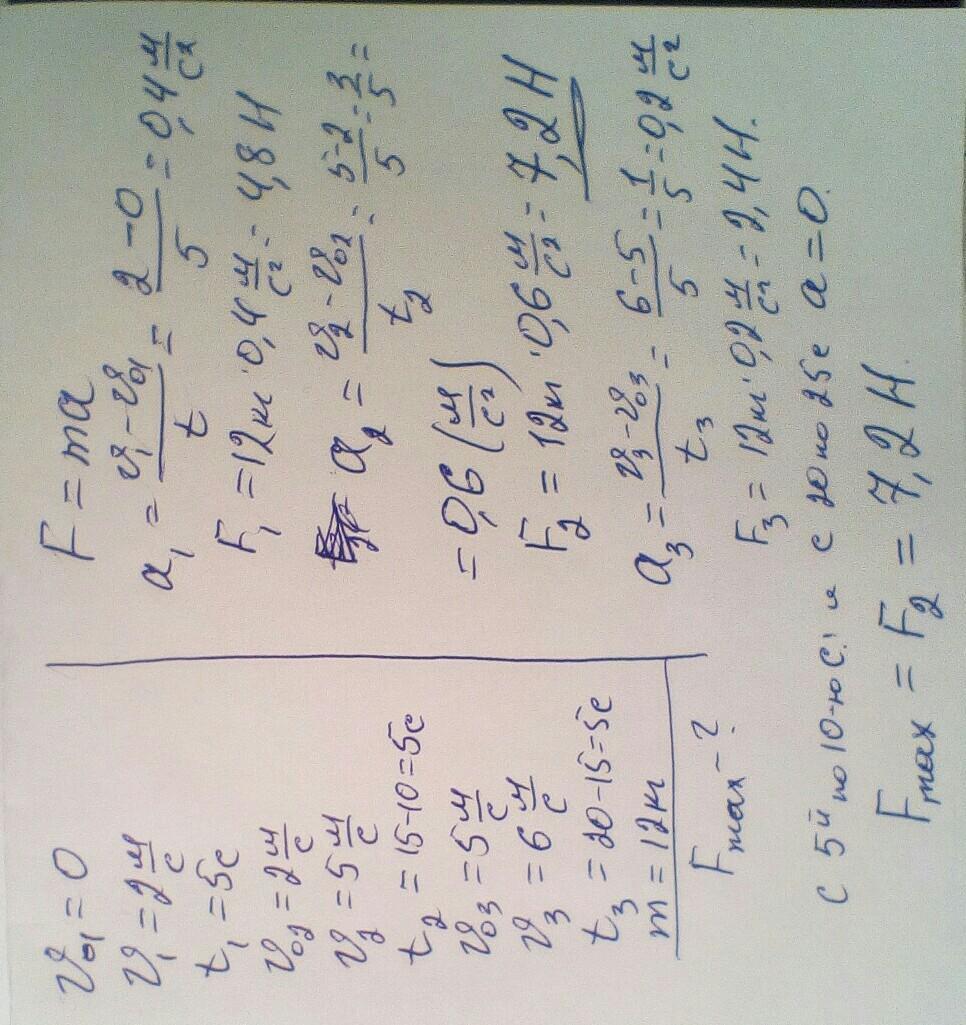 υ₀₁ = 0
υ₁ = 2 м/с
t₁ = 5с
υ₀₂ = 2 м/с
υ₂ = 5 м/с
t₂ = 15-10=5с
υ₀₃ = 5 м/с
υ₃ = 6 м/с
t₃ = 20-15=5с
m = 12кг
Fmax - ?
F = ma
a₁ = (υ₁-υ₀₁)/t = (2-0)/5 = 0,4 м/с²
F₁ = 12кг · 0,4 м/с² = 4,8 Н
a₂ = (υ₂-υ₀₂)/t₂ = (5-2)/5 = 3/5 =
= 0,6 (м/с²)
F₂ = 12кг · 0,6 м/с² = 7,2 Н
a₃ = (υ₃-υ₀₃)/t₃ = (6-5)/5 = 1/5 = 0,2 м/с²
F₃ = 12кг · 0,2 м/с² = 2,4 Н.
с 5й по 10-ю с. и с 20 по 25с a = 0.
Fmax = F₂ = 7,2 Н.